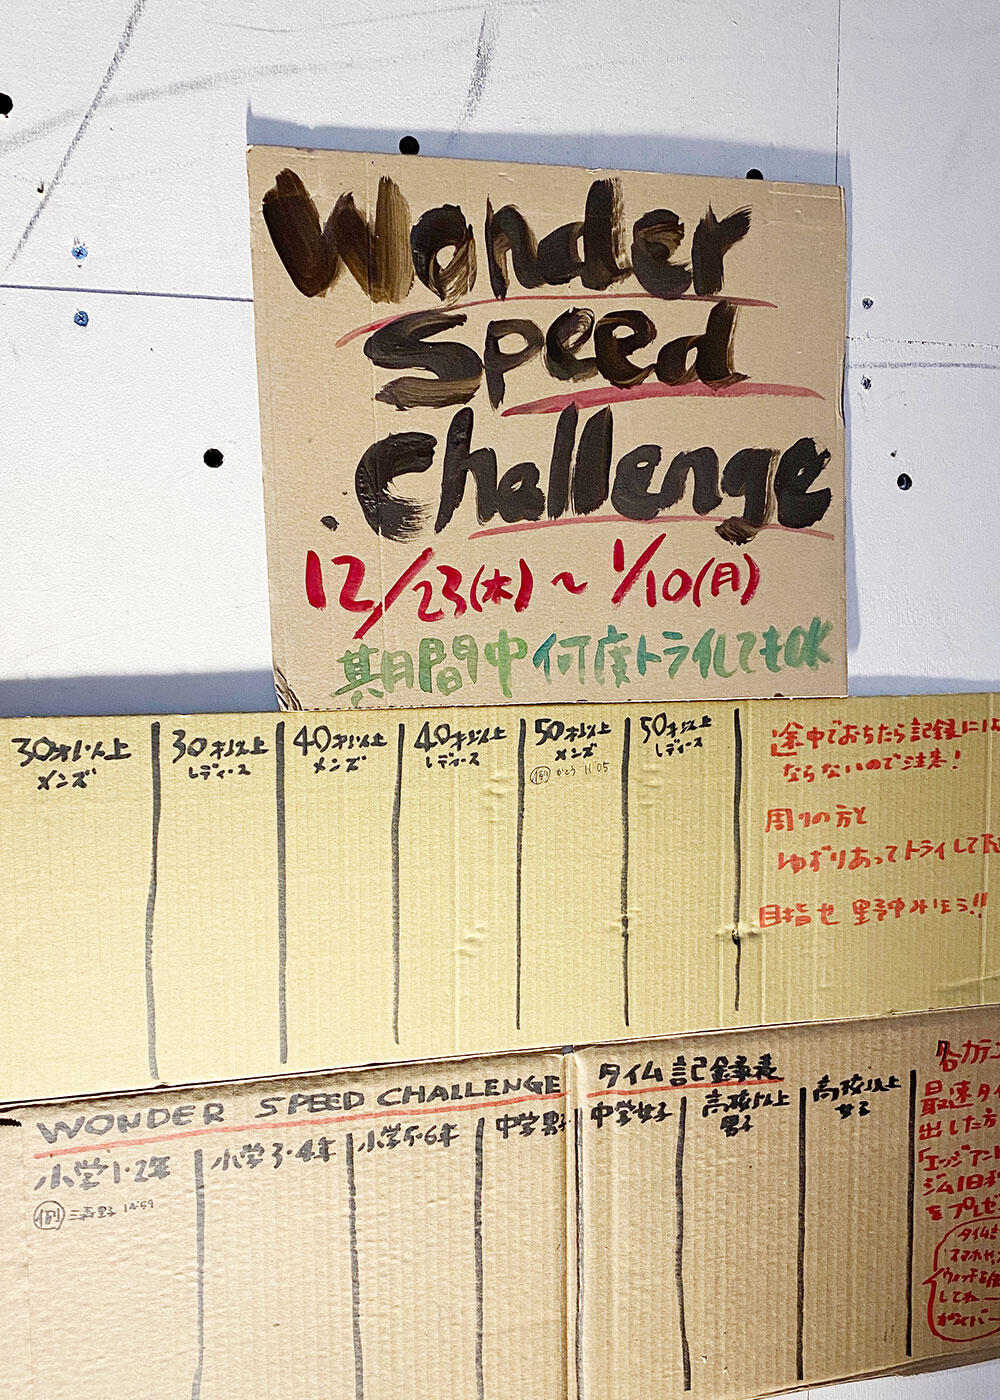 Wonder
Speed
Challenge
12/23(木)〜1/10(月)
期間中何度トライしてもOK
30才以上
メンズ
30才以上
レディース
40才以上
メンズ
40才以上
レディース
50才以上
メンズ
例 かとう 11"05
50才以上
レディース
途中でおちたら記録には
ならないので注意!
周りの方と
ゆずりあってトライして
目指せ 野中みほう!!
WONDER SPEED CHALLENGE
タイム記録表
小学1・2年
例
14"59
小学3・4年
小学5・6年
中学男
中学女子
高校以上
男子
高校以上
女子
各カテ
最速タイ
出した方
「エッジアン
ジム1日利
をプレゼ
タイム
してね